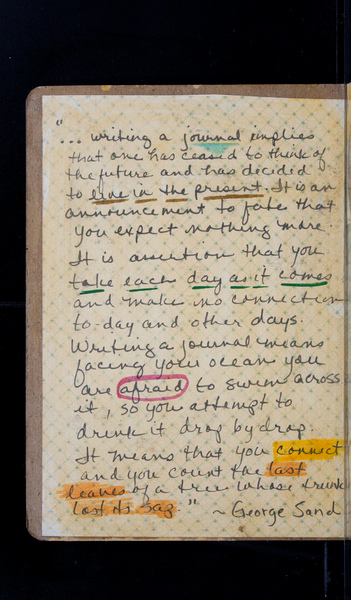 "... writing a journal implies
that one has ceased to think of
the future and has decided
to live in the present. It is an
announcement to fate that
you expect nothing more.
It is assertion that you
take each day as it comes
and make no connection
to-day and other days.
Writing a journal means
facing your ocean you
are afraid to swim across
it, so you attempt to
drink it drop by drop.
It means that you connect
and you count the last
leaves of a tree whose trunk
lost its sap." ~ George Sand